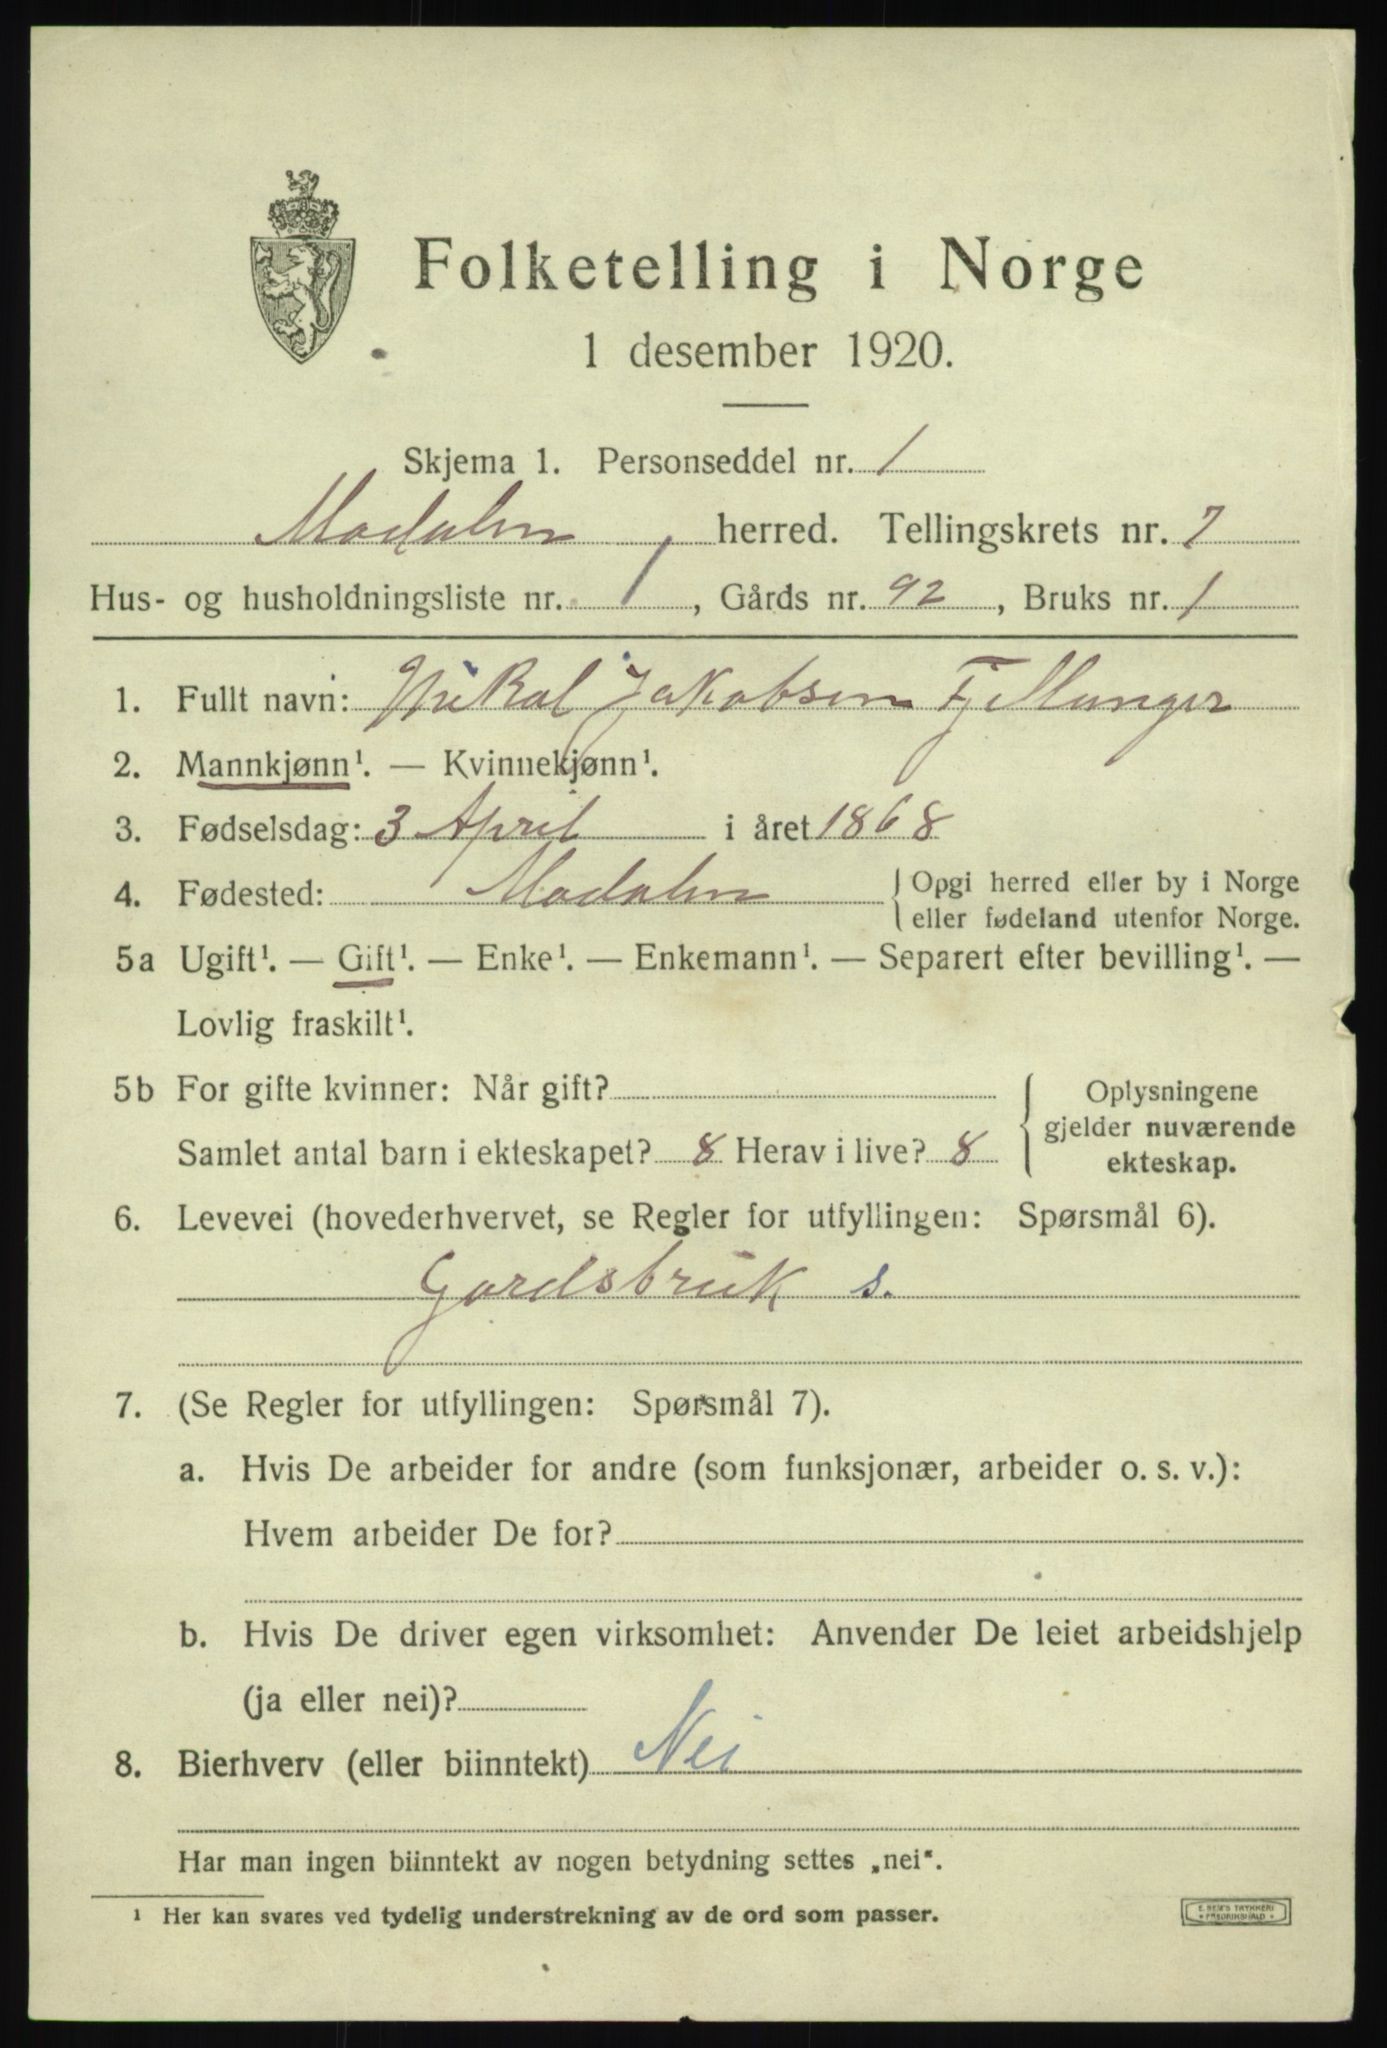 Folketelling i Norge
1 desember 1920.
Skjema 1. Personseddel nr. 1
Modalen herred. Tellingskrets nr. 7
Hus- og husholdningsliste nr. 1, Gårds nr. 92, Bruks nr. 1
1. Fullt navn: Nikal Jakobsen Fjellanger
2. Mannkjønn¹. — Kvinnekjønn¹.
3. Fødselsdag: 3 April i året 1868
4. Fødested: Modalen { Opgi herred eller by i Norge
eller fødeland utenfor Norge.
5a Ugift¹. — Gift¹. — Enke¹. — Enkemann¹. — Separert efter bevilling¹. —
Lovlig fraskilt¹.
5b For gifte kvinner: Når gift?
Samlet antal barn i ekteskapet? 8 Herav i live? 8
{ Oplysningene
gjelder nuværende
ekteskap.
6. Levevei (hovederhvervet, se Regler for utfyllingen: Spørsmål 6).
Gardsbruk s.
7. (Se Regler for utfyllingen: Spørsmål 7).
a. Hvis De arbeider for andre (som funksjonær, arbeider o. s. v.):
Hvem arbeider De for?
b. Hvis De driver egen virksomhet: Anvender De leiet arbeidshjelp
(ja eller nei)?
8. Bierhverv (eller biinntekt) Nei
Har man ingen biinntekt av nogen betydning settes „nei“.
¹ Her kan svares ved tydelig understrekning av de ord som passer.
E. SEM'S TRYKKERI
FREDRIKSHALD